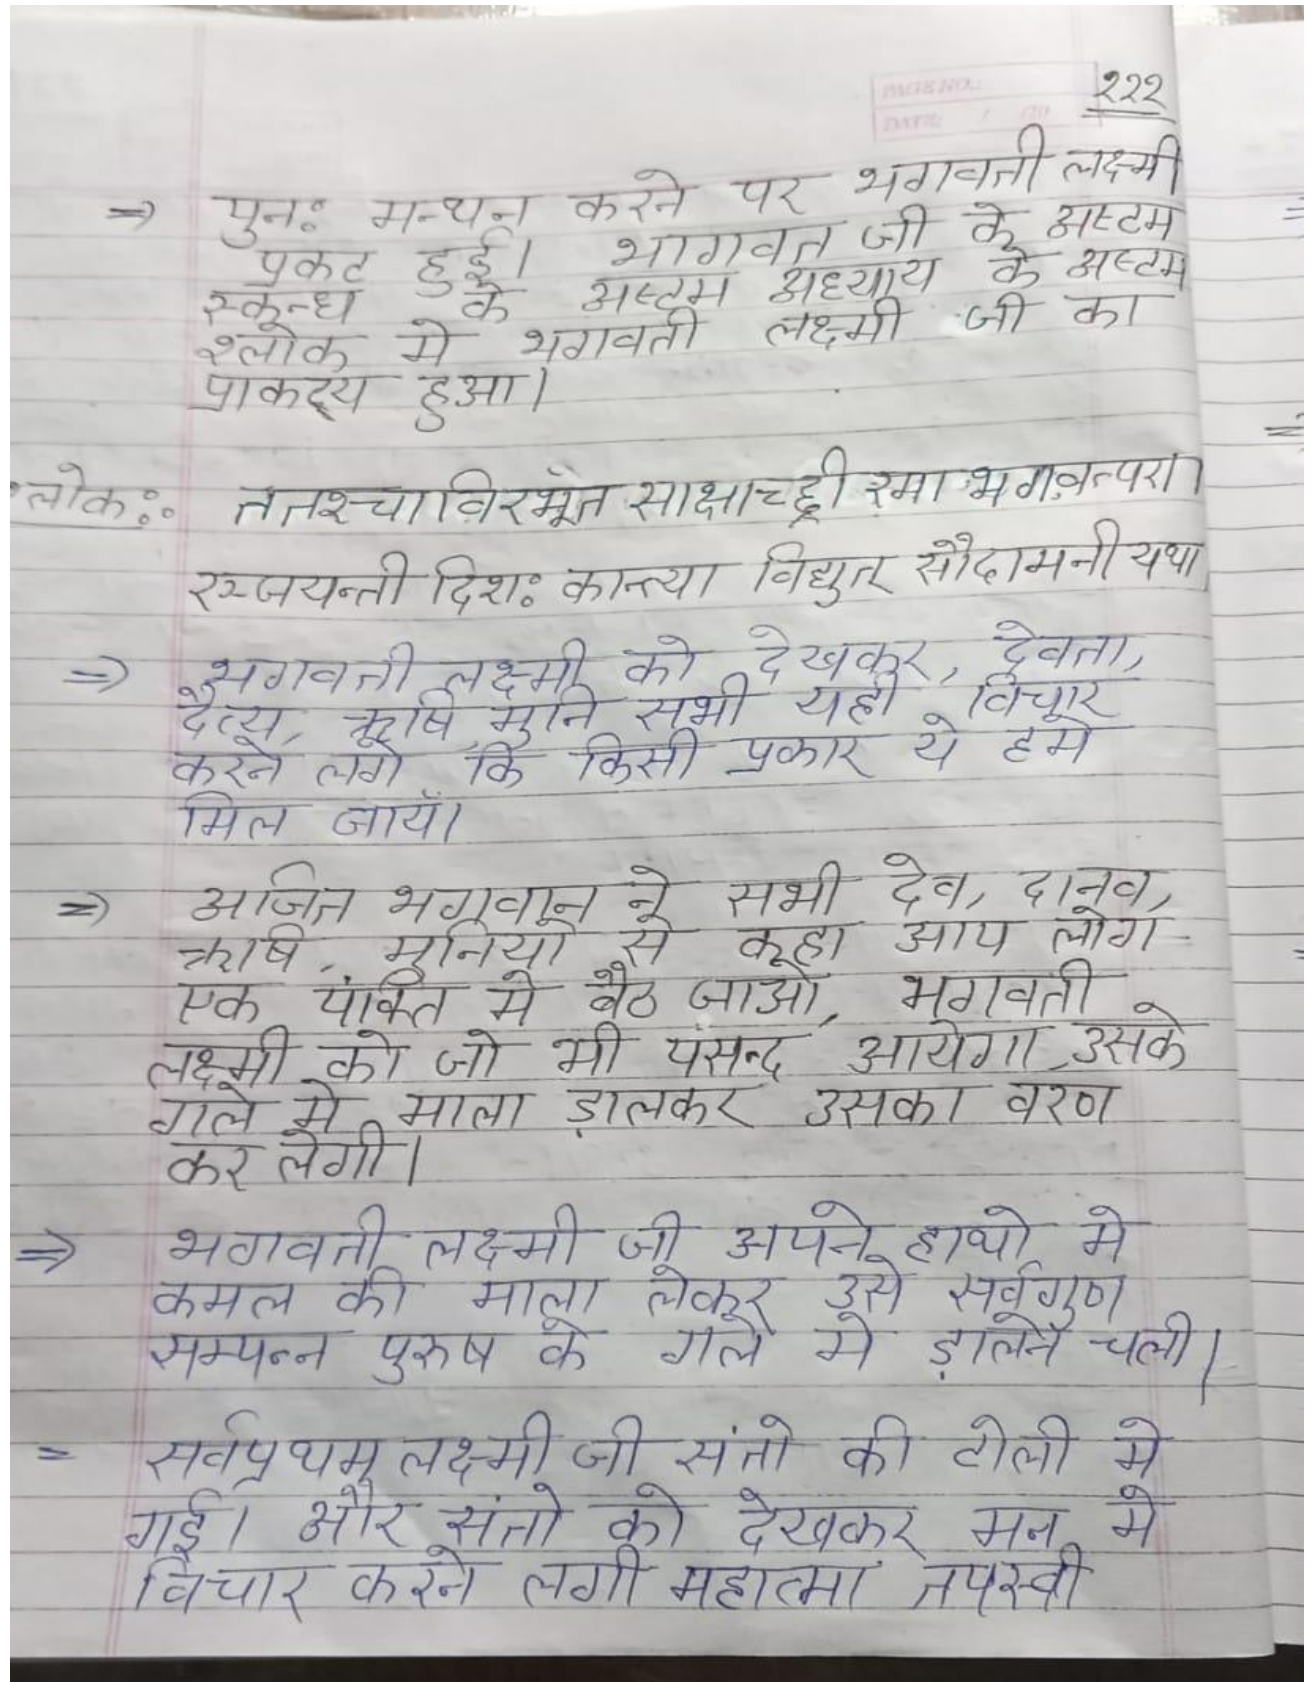 PAGE NO.:
DATE: / /20
२२२
⇒ पुनः मन्थन करने पर भगवती लक्ष्मी
प्रकट हुई। भागवत जी के अष्टम
स्कन्ध के अष्टम अध्याय के अष्टम
श्लोक मे भगवती लक्ष्मी जी का
प्राकट्य हुआ।
श्लोकः ततश्चाविरभूत साक्षाच्छ्री रमा भगवत्परा।
रञ्जयन्ती दिशः कान्त्या विद्युत् सौदामनी यथा
⇒ भगवती लक्ष्मी को देखकर, देवता,
दैत्य, ऋषि, मुनि सभी यही विचार
करने लगे कि किसी प्रकार ये हमे
मिल जायँ।
⇒ अजित भगवान ने सभी देव, दानव,
ऋषि, मुनियो से कहा आप लोग
एक पंक्ति मे बैठ जाओ, भगवती
लक्ष्मी को जो भी पंसन्द आयेगा उसके
गले मे माला ड़ालकर उसका वरण
कर लेगी।
⇒ भगवती लक्ष्मी जी अपने हाथो मे
कमल की माला लेकर उसे सर्वगुण
सम्पन्न पुरुष के गले मे ड़ालने चली।
= सर्वप्रथम लक्ष्मी जी संतो की टोली मे
गई। और संतो को देखकर मन मे
विचार करने लगी महात्मा तपस्वी